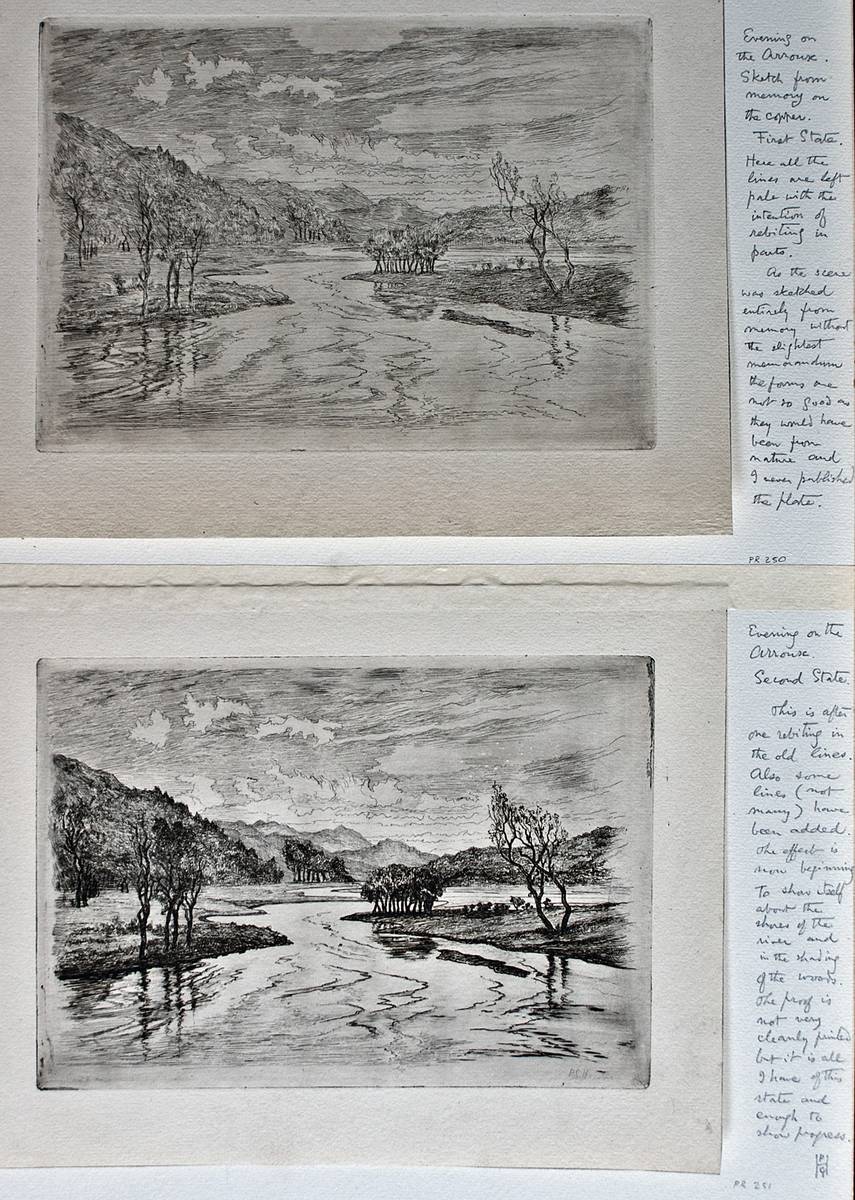 Evening on
the Arroux.
Sketch from
memory on
the copper.
First State.
Here all the
lines are left
pale with the
intention of
rebiting in
parts.
As the scene
was sketched
entirely from
memory without
the slightest
memorandum
the forms are
not so good as
they would have
been from
nature and
I never published
the plate.
PR 250
Evening on the
Arroux.
Second State.
This is after
one rebiting in
the old lines.
Also some
lines (not
many) have
been added.
The effect is
now beginning
to show itself
about the
shores of the
river and
in the shading
of the woods.
The proof is
not very
cleanly printed
but it is all
I have of this
state and
enough to
show progress.
PR 251